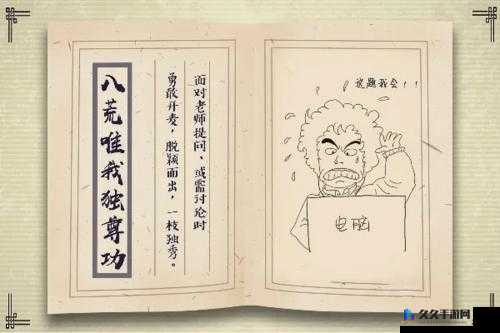 八荒唯我独尊功
面对老师提问、或需讨论时
勇敢开麦，脱颖而出，一枝独秀。
这题我会！！
电脑
久久手游网